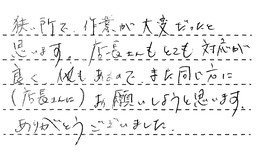 狭い所で、作業が大変だったと
思います。店長さんもとても対応が
良く、他もあるので、また同じ方に
(店長さんに)お願いしようと思います。
ありがとうございました。